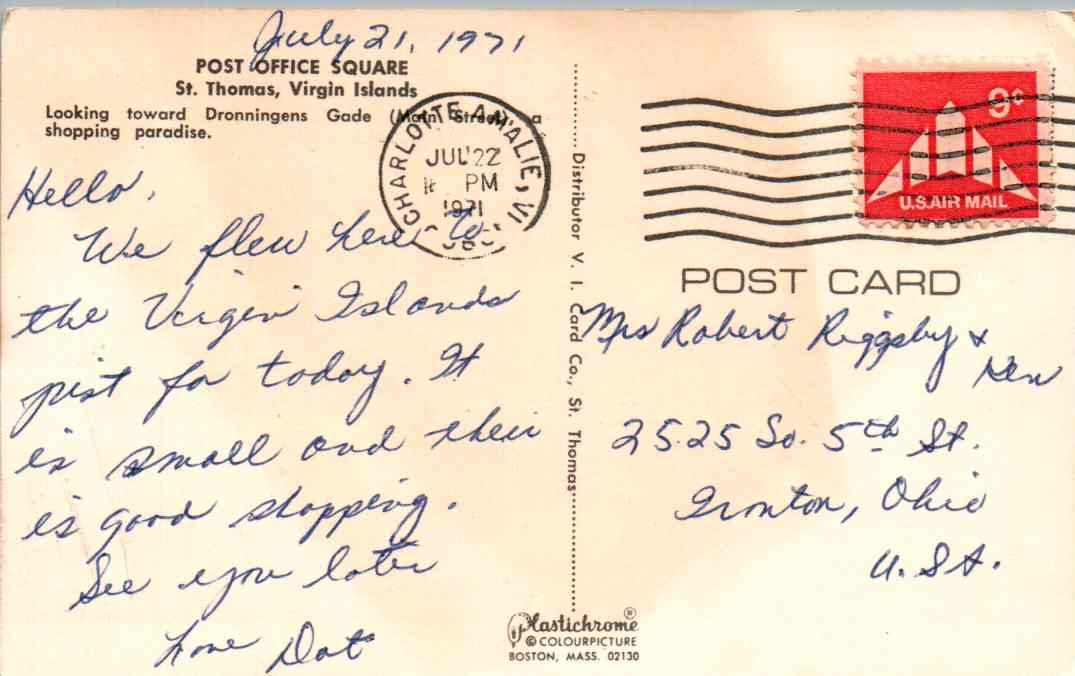 July 21, 1971
POST OFFICE SQUARE
St. Thomas, Virgin Islands
Looking toward Dronningens Gade (Main Street) a
shopping paradise.
CHARLOTTE AMALIE, VI
JUL 22
PM
1971
Hello,
We flew here to
the Virgin Islands
just for today. It
is small and their
is good shopping.
See you later
Love Dot
Distributor V. I. Card Co., St. Thomas
9¢
U.S. AIR MAIL
POST CARD
Mrs Robert Riggsby &
Ken
2525 So. 5th St.
Ironton, Ohio
U.S.A.
Plastichrome ®
© COLOURPICTURE
BOSTON, MASS. 02130